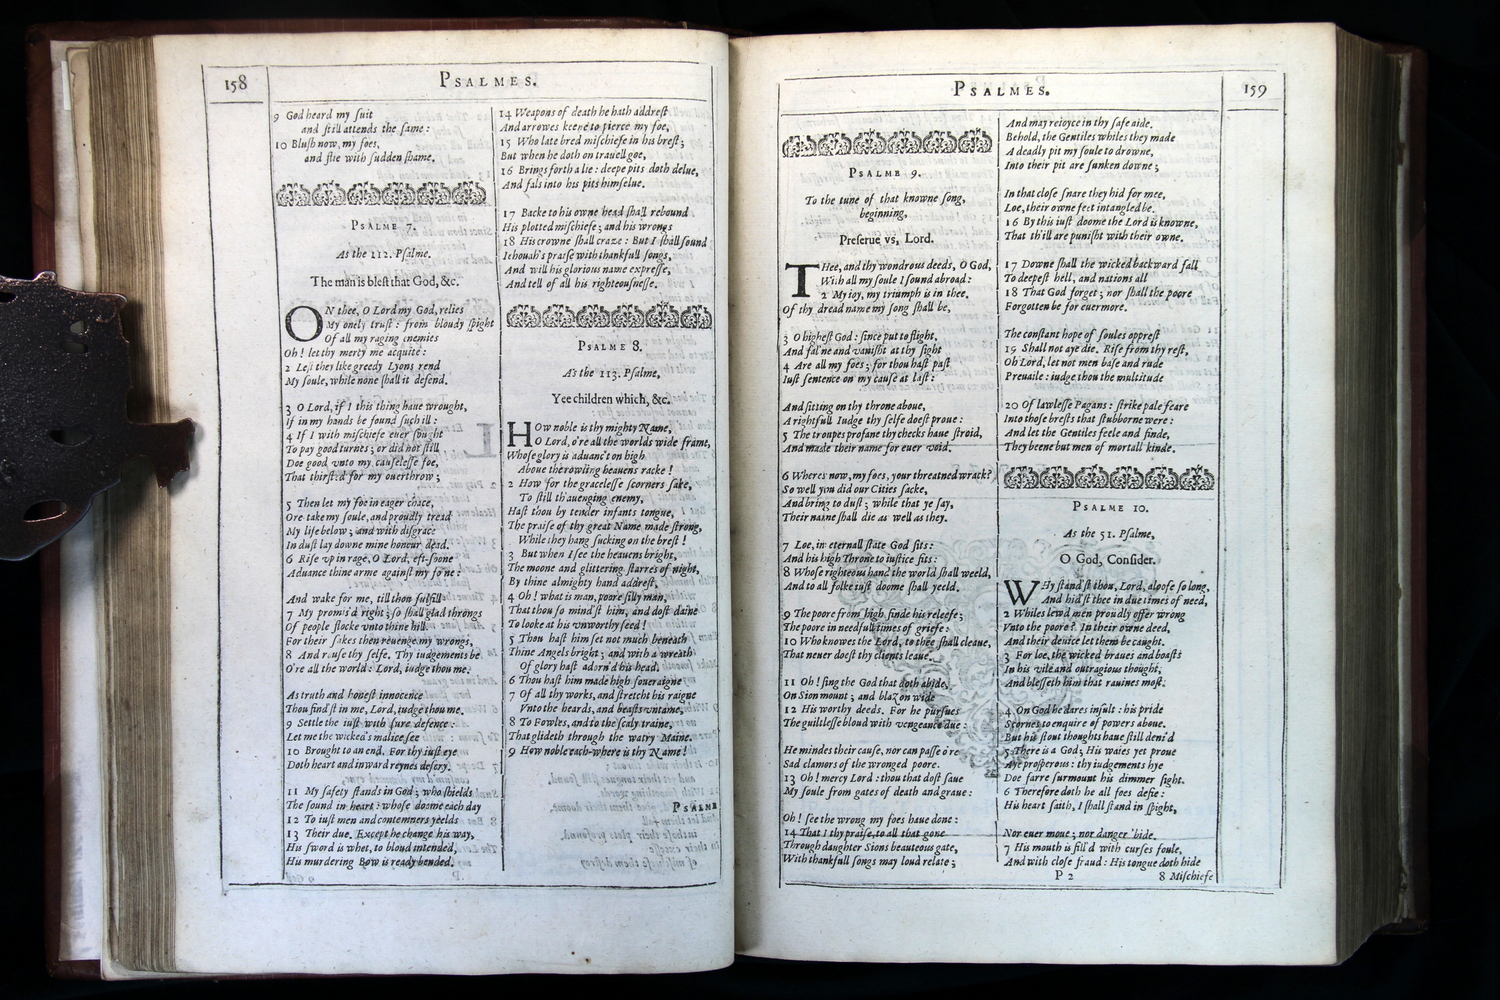 158
PSALMES.
9 God heard my suit
and still attends the same:
10 Blush now, my foes,
and flie with sudden shame.
PSALME 7.
As the 112. Psalme.
The man is blest that God, &c.
ON thee, O Lord my God, relies
My onely trust: from bloudy spight
Of all my raging enemies
Oh! let thy mercy me acquite:
2 Lest they like greedy Lyons rend
My soule, while none shall it defend.
3 O Lord, if I this thing haue wrought,
If in my hands be found such ill:
4 If I with mischiefe euer sought
To pay good turnes; or did not still
Doe good vnto my causelesse foe,
That thirst:d for my ouerthrow;
5 Then let my foe in eager chace,
Ore take my soule, and proudly tread
My life below; and with disgrace
In dust lay downe mine honour dead.
6 Rise vp in rage, O Lord, eft-soone
Aduance thine arme against my fo'ne:
And wake for me, till thou fulfill
7 My promis'd right; so shall glad throngs
Of people flocke vnto thine hill.
For their sakes then reuenge my wrongs,
8 And rouse thy selfe. Thy iudgements be
O're all the world: Lord, iudge thou me.
As truth and honest innocence
Thou find'st in me, Lord, iudge thou me.
9 Settle the iust with sure defence:
Let me the wicked's malice see
10 Brought to an end. For thy iust eye
Doth heart and inward reynes descry.
11 My safety stands in God; who shields
The sound in heart: whose doome each day
12 To iust men and contemners yeelds
13 Their due. Except he change his way,
His sword is whet, to bloud intended,
His murdering Bow is ready bended.
14 Weapons of death he hath addrest
And arrowes keene to pierce my foe,
15 Who late bred mischiefe in his brest;
But when he doth on trauell goe,
16 Brings forth a lie: deepe pits doth delue,
And fals into his pits himselue.
17 Backe to his owne head shall rebound
His plotted mischiefe; and his wrongs
18 His crowne shall craze: But I shall sound
Iehouah's praise with thankfull songs,
And will his glorious name expresse,
And tell of all his righteousnesse.
PSALME 8.
As the 113. Psalme,
Yee children which, &c.
HOw noble is thy mighty Name,
O Lord, o're all the worlds wide frame,
Whose glory is aduanc't on high
Aboue the rowling heauens racke!
2 How for the gracelesse scorners sake,
To still th'auenging enemy,
Hast thou by tender infants tongue,
The praise of thy great Name made strong,
While they hang sucking on the brest!
3 But when I see the heauens bright,
The moone and glittering starres of night,
By thine almighty hand addrest,
4 Oh! what is man, poore silly man,
That thou so mind'st him, and dost daine
To looke at his vnworthy seed!
5 Thou hast him set not much beneath
Thine Angels bright; and with a wreath
Of glory hast adorn'd his head,
6 Thou hast him made high soueraigne
7 Of all thy works, and stretcht his raigne
Vnto the heards, and beasts vntame,
8 To Fowles, and to the scaly traine,
That glideth through the watry Maine.
9 How noble each-where is thy Name!
PSALME
PSALMES.
159
PSALME 9.
To the tune of that knowne song,
beginning,
Preserue vs, Lord.
THee, and thy wondrous deeds, O God,
With all my soule I sound abroad:
2 My ioy, my triumph is in thee.
Of thy dread name my song shall be,
3 O highest God: since put to flight,
And fal'ne and vanisht at thy sight
4 Are all my foes; for thou hast past
Iust sentence on my cause at last:
And sitting on thy throne aboue,
A rightfull Iudge thy selfe doest proue:
5 The troupes profane thy checks haue stroid,
And made their name for euer void.
6 Where's now, my foes, your threatned wrack?
So well you did our Cities sacke,
And bring to dust; while that ye say,
Their name shall die as well as they.
7 Loe, in eternall state God sits:
And his high Throne to iustice fits:
8 Whose righteous hand the world shall weeld,
And to all folke iust doome shall yeeld.
9 The poore from high finde his releefe;
The poore in needfull times of griefe:
10 Who knowes the Lord, to thee shall cleaue,
That neuer doest thy clients leaue.
11 Oh! sing the God that doth abide,
On Sion mount; and blazon wide
12 His worthy deeds. For he pursues
The guiltlesse bloud with vengeance due:
He mindes their cause, nor can passe o're
Sad clamors of the wronged poore.
13 Oh! mercy Lord: thou that dost saue
My soule from gates of death and graue:
Oh! see the wrong my foes haue done:
14 That I thy praise, to all that gone
Through daughter Sions beauteous gate,
With thankfull songs may loud relate;
And may reioyce in thy safe aide.
Behold, the Gentiles whiles they made
A deadly pit my soule to drowne,
Into their pit are sunken downe;
In that close snare they hid for mee,
Loe, their owne feet intangled be.
16 By this iust doome the Lord is knowne,
That th'ill are punisht with their owne.
17 Downe shall the wicked backward fall
To deepest hell, and nations all
18 That God forget; nor shall the poore
Forgotten be for euermore.
The constant hope of soules opprest
19 Shall not aye die. Rise from thy rest,
Oh Lord, let not men base and rude
Preuaile: iudge thou the multitude
20 Of lawlesse Pagans: strike pale feare
Into those brests that stubborne were:
And let the Gentiles feele and finde,
They beene but men of mortall kinde.
PSALME 10.
As the 51. Psalme,
O God, Consider.
WHy stand'st thou, Lord, aloofe so long,
And hid'st thee in due times of need,
2 Whiles lewd men proudly offer wrong
Vnto the poore?. In their owne deed,
And their deuice let them be caught.
3 For loe, the wicked braues and boasts
In his vile and outragious thought,
And blesseth him that rauines most.
4 On God he dares insult: his pride
Scornes to enquire of powers aboue.
But his stout thoughts haue still deni'd
5 There is a God; His waies yet proue
Aye prosperous: thy iudgements hye
Doe farre surmount his dimmer sight.
6 Therefore doth he all foes defie:
His heart saith, I shall stand in spight,
Nor euer moue; nor danger 'bide.
7 His mouth is fill'd with curses foule,
And with close fraud: His tongue doth hide
P 2
8 Mischiefe